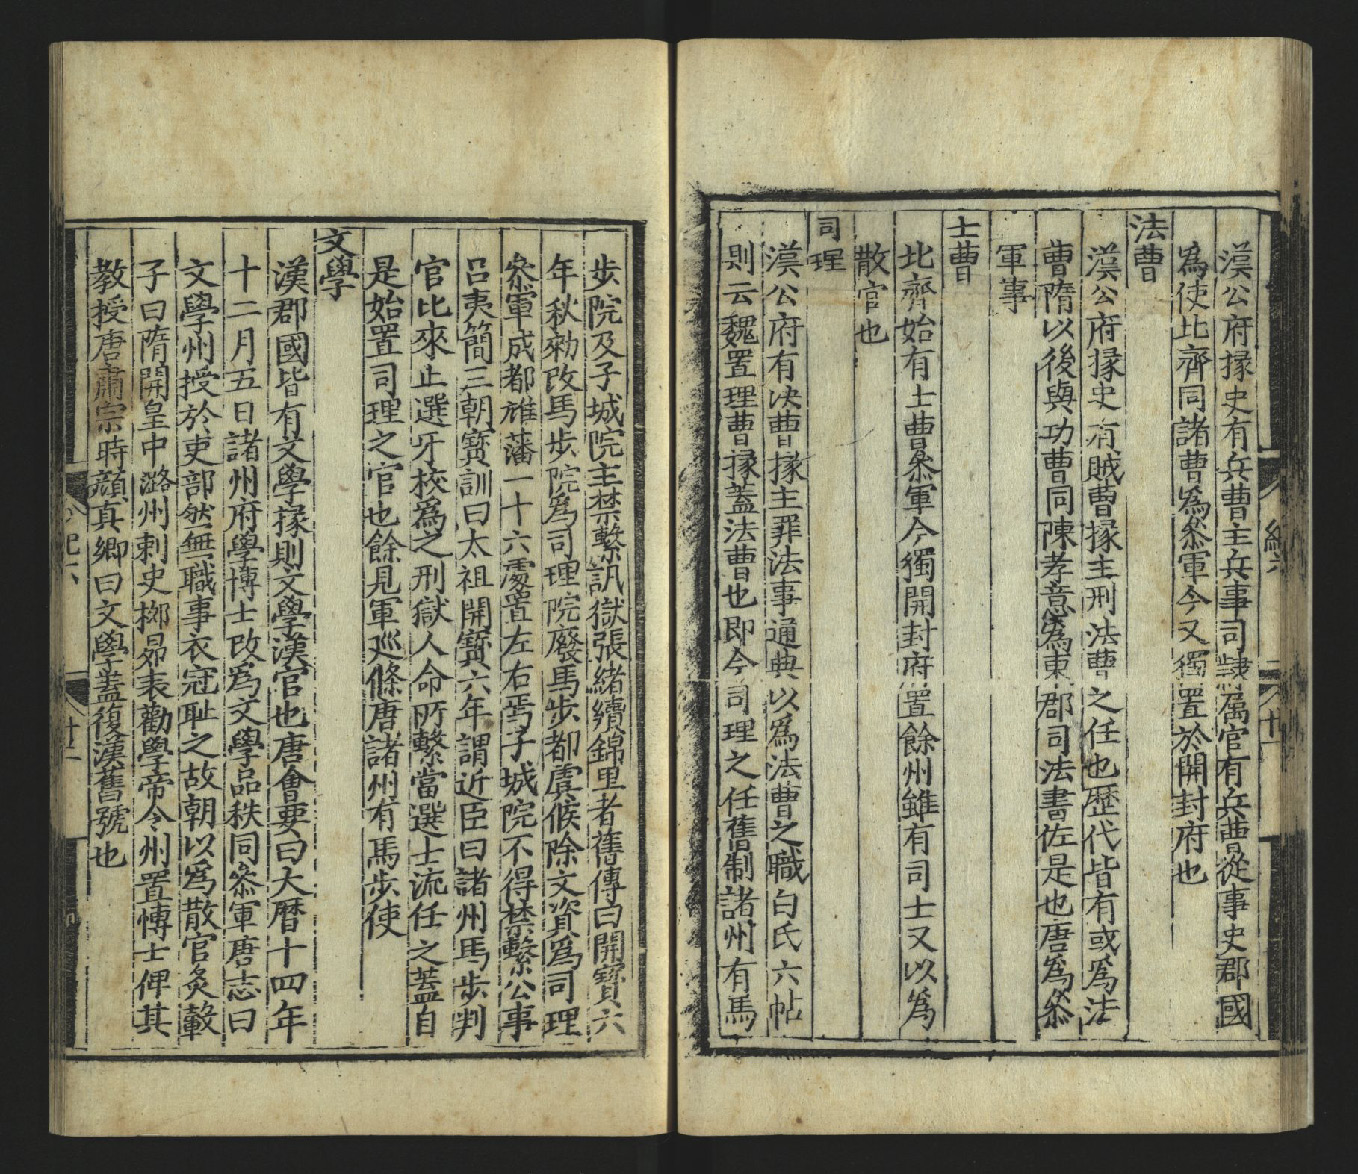 漢公府掾史有兵曹主兵事司隷屬官有兵曹從事史郡國
爲使北齊同諸曹爲叅軍今又獨置於開封府也
法曹
漢公府掾史有賊曹掾主刑法曹之任也歴代皆有或爲法
曹隋以後與功曹同陳孝意爲東郡司法書佐是也唐爲叅
軍事
士曹
北齊始有士曹叅軍今獨開封府置餘州雖有司士又以爲
散官也
司理
漢公府有决曹掾主罪法事通典以爲法曹之職白氏六帖
則云魏置理曹掾蓋法曹也即今司理之任舊制諸州有馬
步院及子城院主禁繫訊獄張緒續錦里耆舊傳曰開寳六
年秋勑改馬步院爲司理院廢馬步都虞候除文資爲司理
叅軍成都雄藩一十六處置左右焉子城院不得禁繫公事
吕夷簡三朝寳訓曰太祖開寳六年謂近臣曰諸州馬步判
官比來止選牙校爲之刑獄人命所繫當選士流任之蓋自
是始置司理之官也餘見軍廵條唐諸州有馬步使
文學
漢郡國皆有文學掾則文學漢官也唐會要曰大曆十四年
十二月五日諸州府學博士改爲文學品秩同叅軍唐志曰
文學州授於吏部然無職事衣冠耻之故朝以爲散官炙轂
子曰隋開皇中潞州刺史栁昴表勸學帝令州置愽士俾其
教授唐肅宗時顔真卿曰文學蓋復漢舊號也